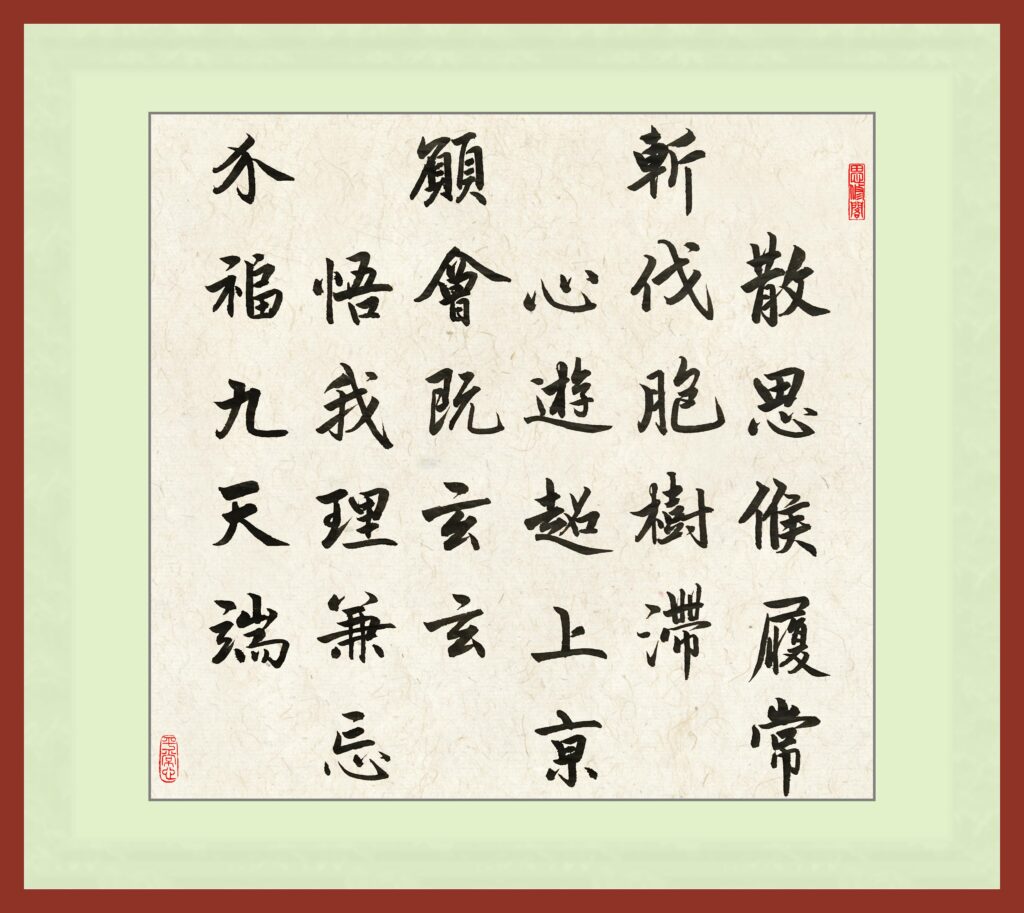 散思候履常
斬伐胞樹滯
心遊超上京
願會既玄玄
悟我理兼忘
介福九天端
思修閣
平常心